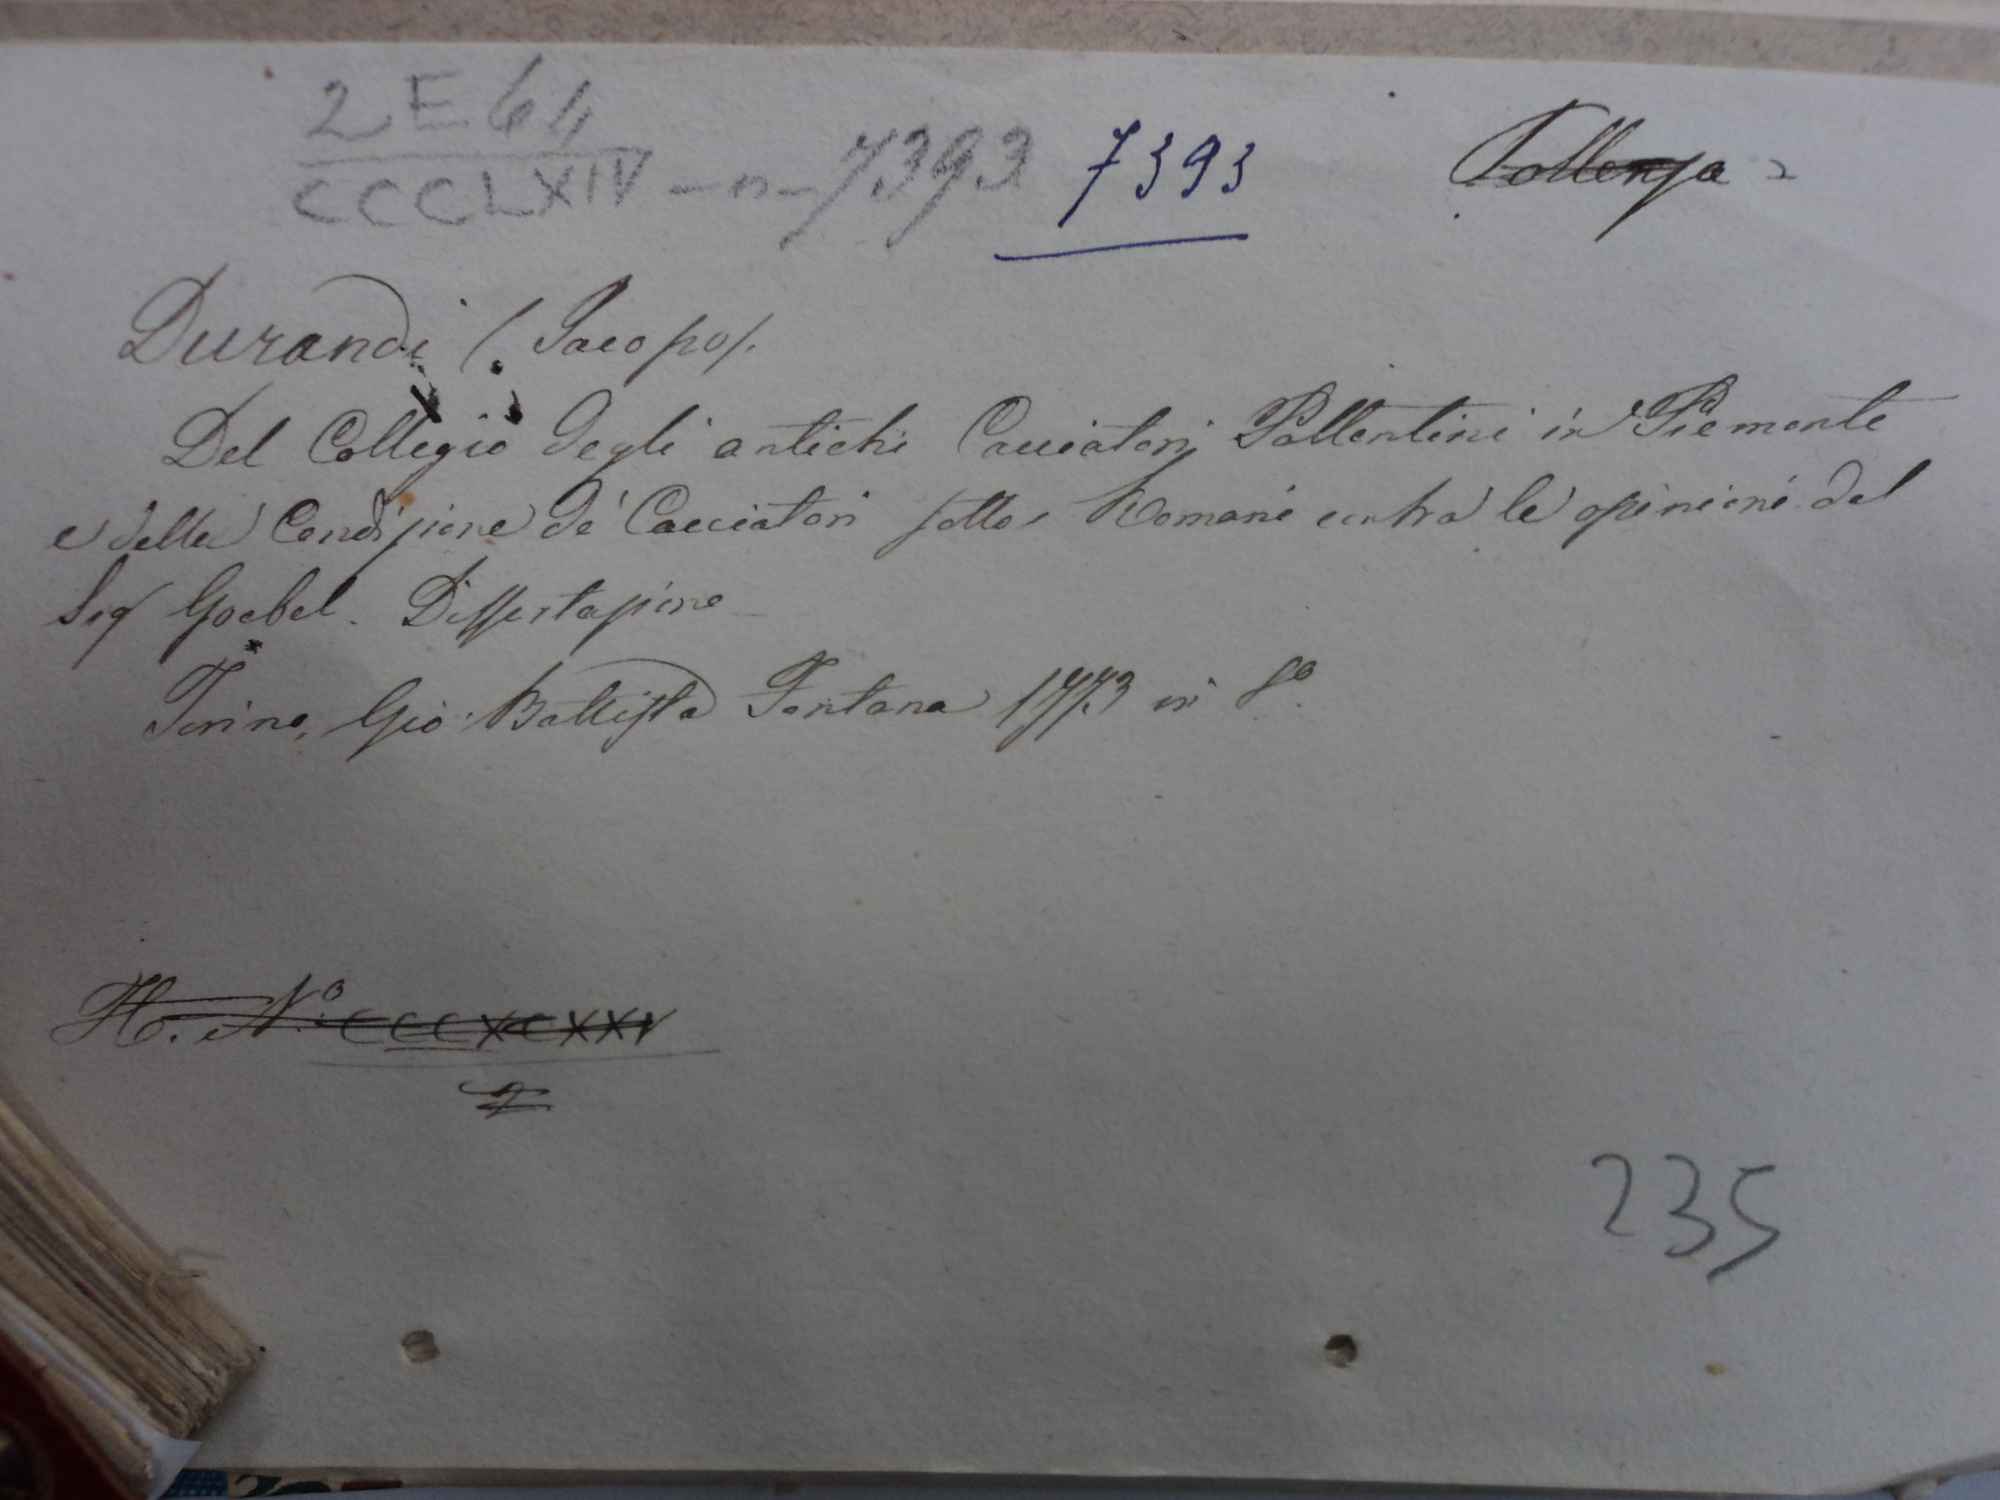 2 E 64
CCCLXIV - n - 7393 7393 Pollenza
Durandi (Jacopo).
Del Collegio degli antichi Cacciatori Pollentini in Piemonte
e della Condizione de' Cacciatori sotto i Romani contra le opinioni del
Sig Goebel. Dissertazione
Torino, Gio: Battista Fontana 1773 in 8º
H. Nº CCCXCXXIV
2
235